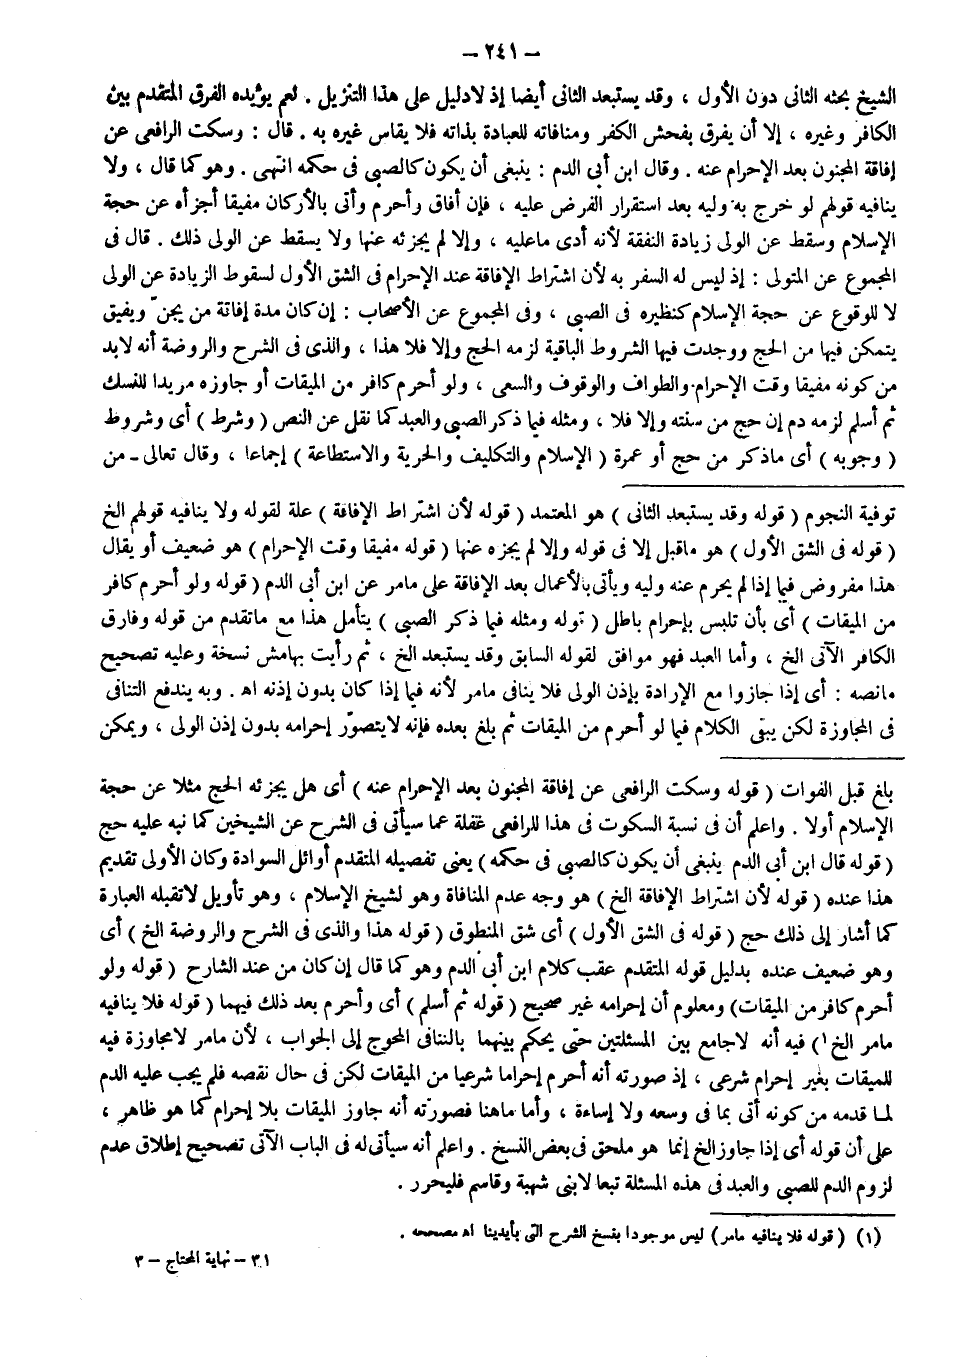 – ٢٤١ –
الشيخ بحثه الثانى دون الأول ، وقد يستبعد الثانى أيضا إذ لادليل على هذا التنزيل . لعم يؤيده الفرق المتقدم بين
الكافر وغيره ، إلا أن يفرق بفحش الكفر ومنافاته للعبادة بذاته فلا يقاس غيره به . قال : وسكت الرافعى عن
إفاقة المجنون بعد الإحرام عنه . وقال ابن أبى الدم : ينبغى أن يكون كالصبى فى حكمه انتهى . وهو كما قال ، ولا
ينافيه قولهم لو خرج به وليه بعد استقرار الفرض عليه ، فإن أفاق وأحرم وأتى بالأركان مفيقا أجزأه عن حجة
الإسلام وسقط عن الولى زيادة النفقة لأنه أدى ماعليه ، وإلا لم يجزئه عنها ولا يسقط عن الولى ذلك . قال فى
المجموع عن المتولى : إذ ليس له السفر به لأن اشتراط الإفاقة عند الإحرام فى الشق الأول لسقوط الزيادة عن الولى
لا للوقوع عن حجة الإسلام كنظيره فى الصبى ، وفى المجموع عن الأصحاب : إن كان مدة إفاتة من يجنّ ويفيق
يتمكن فيها من الحج ووجدت فيها الشروط الباقية لزمه الحج وإلا فلا هذا ، والذى فى الشرح والروضة أنه لابد
من كونه مفيقا وقت الإحرام والطواف والوقوف والسعى ، ولو أحرم كافر من الميقات أو جاوزه مريدا للنسك
ثم أسلم لزمه دم إن حج من سنته وإلا فلا ، ومثله فيما ذكر الصبى والعبد كما نقل عن النص ( وشرط ) أى وشروط
( وجوبه ) أى ماذكر من حج أو عمرة ( الإسلام والتكليف والحرية والاستطاعة ) إجماعا ، وقال تعالى - من
توفية النجوم ( قوله وقد يستبعد الثانى ) هو المعتمد ( قوله لأن اشتراط الإفاقة ) علة لقوله ولا ينافيه قولهم الخ
( قوله فى الشق الأول ) هو ماقبل إلا فى قوله وإلا لم يجزه عنها ( قوله مفيقا وقت الإحرام ) هو ضعيف أو يقال
هذا مفروض فيما إذا لم يحرم عنه وليه ويأتى بالأعمال بعد الإفاقة على مامر عن ابن أبى الدم ( قوله ولو أحرم كافر
من الميقات ) أى بأن تلبس بإحرام باطل ( قوله ومثله فيما ذكر الصبى ) يتأمل هذا مع ماتقدم من قوله وفارق
الكافر الآتى الخ ، وأما العبد فهو موافق لقوله السابق وقد يستبعد الخ ، ثم رأيت بهامش نسخة وعليه تصحيح
مانصه : أى إذا جازوا مع الإرادة بإذن الولى فلا ينافى مامر لأنه فيما إذا كان بدون إذنه اه . وبه يندفع التنافى
فى المجاوزة لكن يبقى الكلام فيما لو أحرم من الميقات ثم بلغ بعده فإنه لايتصوّر إحرامه بدون إذن الولى ، ويمكن
بلغ قبل الفوات ( قوله وسكت الرافعى عن إفاقة المجنون بعد الإحرام عنه ) أى هل يجزئه الحج مثلا عن حجة
الإسلام أولا . واعلم أن فى نسبة السكوت فى هذا للرافعى غفلة عما سيأتى فى الشرح عن الشيخين كما نبه عليه حج
( قوله قال ابن أبى الدم ينبغى أن يكون كالصبى فى حكمه ) يعنى تفصيله المتقدم أوائل السوادة وكان الأولى تقديم
هذا عنده ( قوله لأن اشتراط الإفاقة الخ ) هو وجه عدم المنافاة وهو لشيخ الإسلام ، وهو تأويل لاتقبله العبارة
كما أشار إلى ذلك حج ( قوله فى الشق الأول ) أى شق المنطوق ( قوله هذا والذى فى الشرح والروضة الخ ) أى
وهو ضعيف عنده بدليل قوله المتقدم عقب كلام ابن أبى الدم وهو كما قال إن كان من عند الشارح ( قوله ولو
أحرم كافر من الميقات ) ومعلوم أن إحرامه غير صحيح ( قوله ثم أسلم ) أى وأحرم بعد ذلك فيهما ( قوله فلا ينافيه
مامر الخ ١ ) فيه أنه لاجامع بين المسئلتين حتى يحكم بينهما بالتنافى المحوج إلى الجواب ، لأن مامر لامجاوزة فيه
للميقات بغير إحرام شرعى ، إذ صورته أنه أحرم إحراما شرعيا من الميقات لكن فى حال نقصه فلم يجب عليه الدم
لما قدمه من كونه أتى بما فى وسعه ولا إساءة ، وأما ماهنا فصورته أنه جاوز الميقات بلا إحرام كما هو ظاهر ،
على أن قوله أى إذا جاوز الخ إنما هو ملحق فى بعض النسخ . واعلم أنه سيأتى له فى الباب الآتى تصحيح إطلاق عدم
لزوم الدم للصبى والعبد فى هذه المسئلة تبعا لابنى شهبة وقاسم فليحرر .
(١) ( قوله فلا ينافيه مامر ) ليس موجودا بنسخ الشرح التى بأيدينا اه مصححه .
٣١ – نهاية المحتاج – ٣